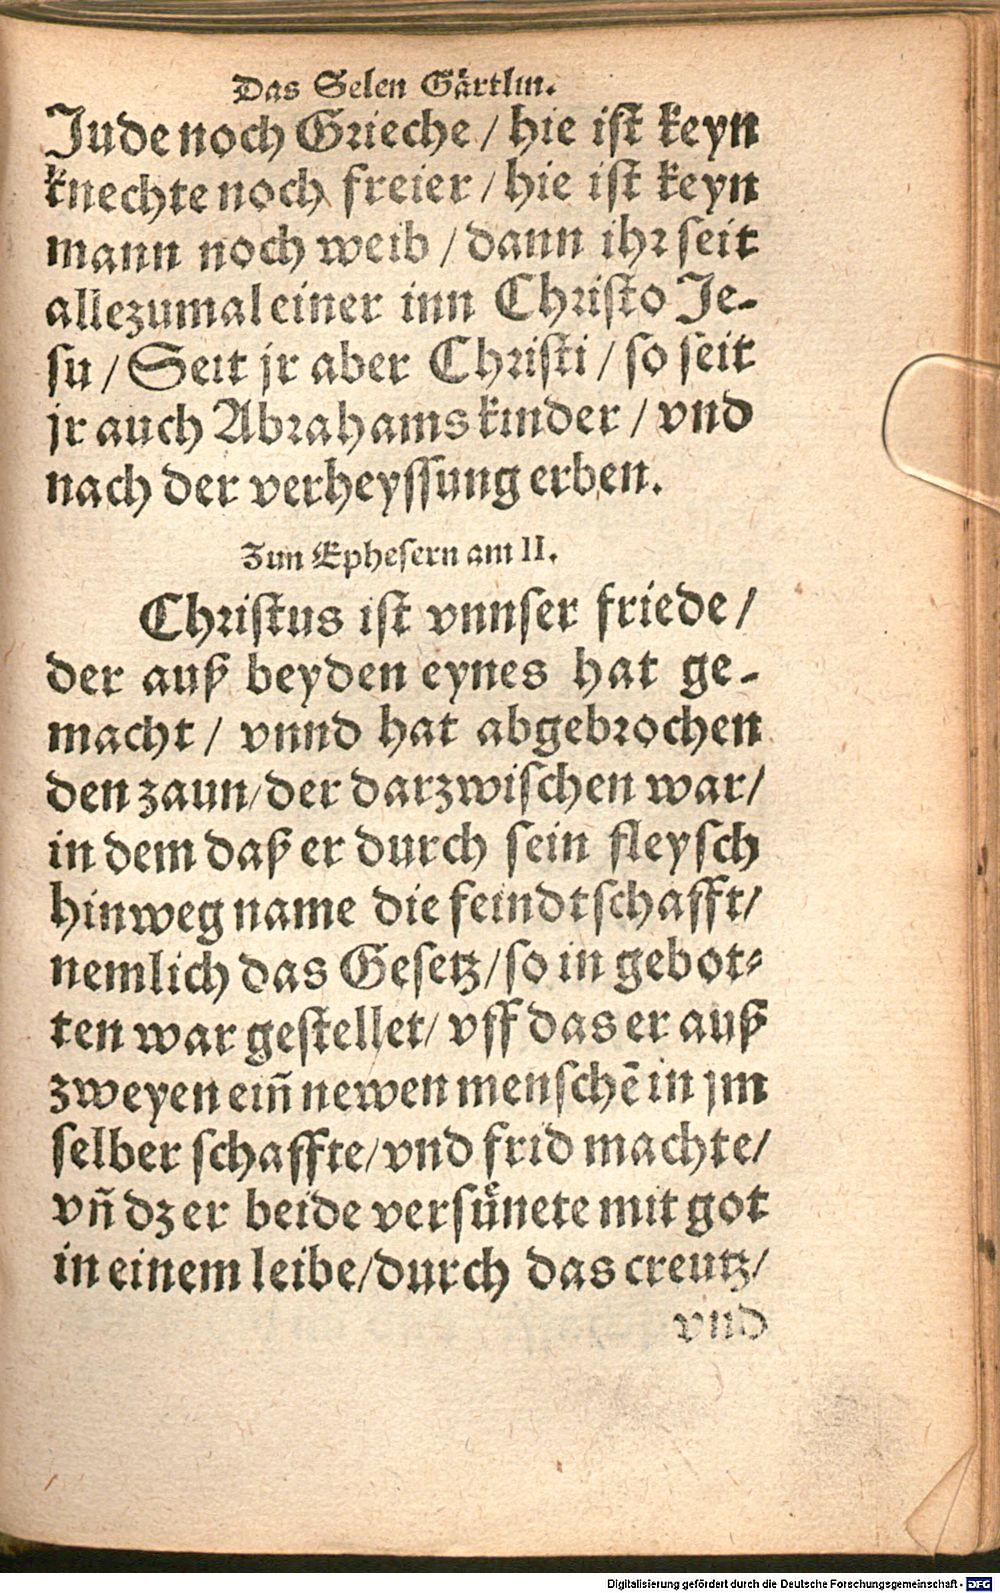 Das Selen Gärtlin.
Jude noch Grieche / hie ist keyn
knechte noch freier / hie ist keyn
mann noch weib / dann ihr seit
allezumal einer inn Christo Je-
su / Seit jr aber Christi / so seit
jr auch Abrahams kinder / vnd
nach der verheyssung erben.
Zun Ephesern am II.
Christus ist vnnser friede /
der auß beyden eynes hat ge-
macht / vnnd hat abgebrochen
den zaun / der darzwischen war /
in dem daß er durch sein fleysch
hinweg name die feindtschafft /
nemlich das Gesetz / so in gebot-
ten war gestellet / vff das er auß
zweyen ein̄ newen menschē in jm
selber schaffte / vnd frid machte /
vn̄ dz er beide versuͤnete mit got
in einem leibe / durch das creutz /
vnd
Digitalisierung gefördert durch die Deutsche Forschungsgemeinschaft - DFG